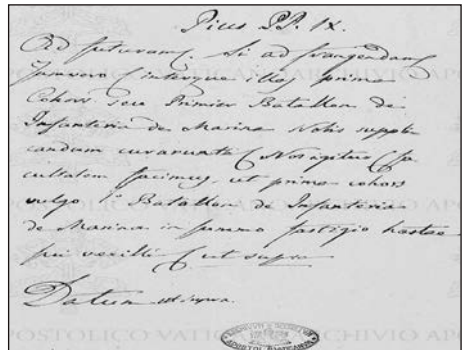 Pius PP. IX.
Ad futuram. Si ad frangendam
Jamvero interque illos prima
Cohors seu Primier Batallon de
Infanteria de Marina Nobis suppli
candum curarunt Nos igitur fa
cultatem facimus, ut prima cohors
vulgo Batallon de Infanteria
de Marina in summo fastigio hastae
sui vexilli ut supra
Datum ut supra.